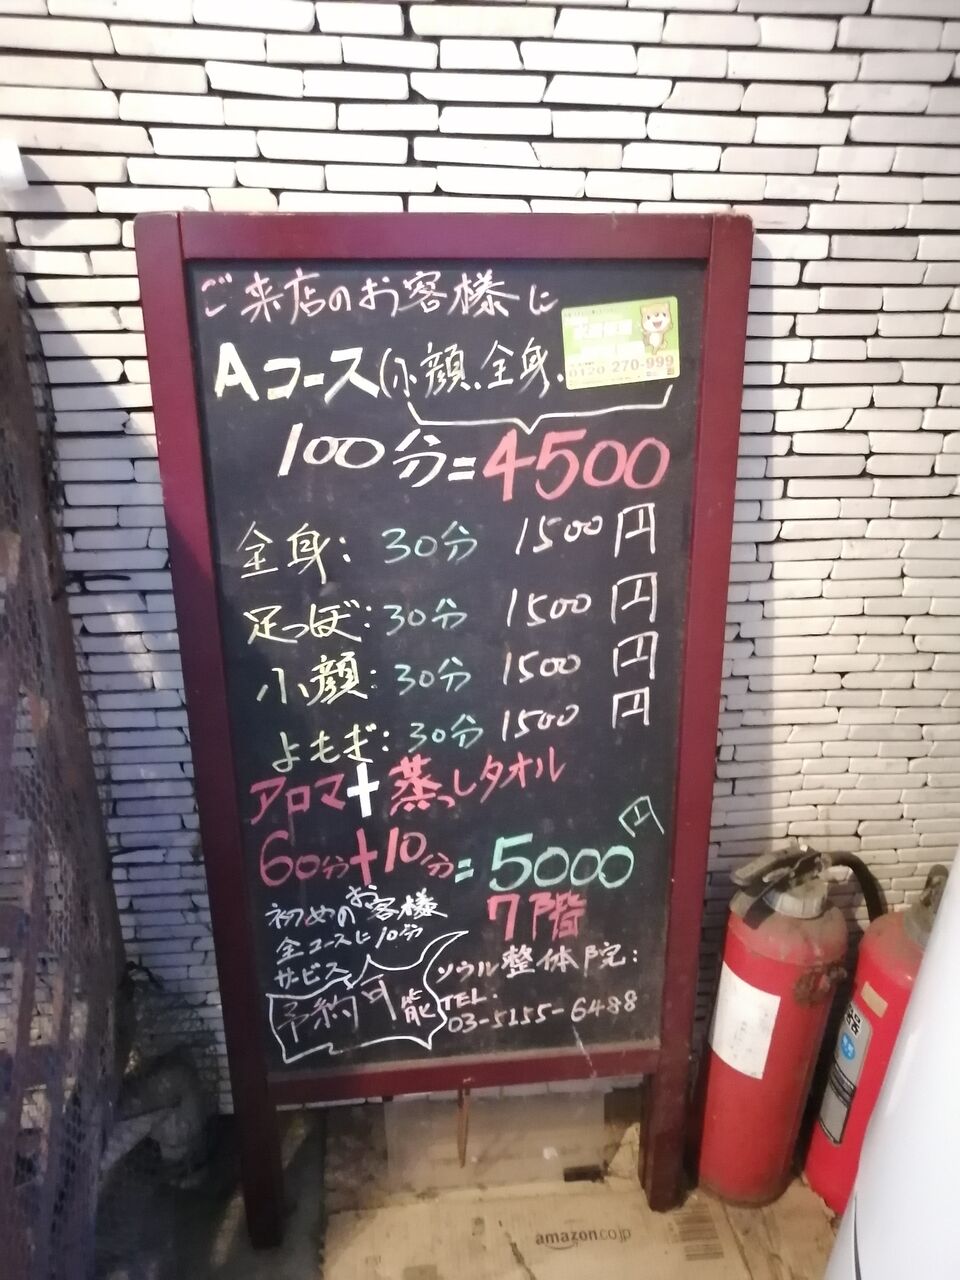 ご来店のお客様に
Aコース(小顔、全身、
0120 270-999
100分=4500
全身: 30分 1500円
足つぼ: 30分 1500円
小顔: 30分 1500円
よもぎ: 30分 1500円
アロマ+蒸しタオル
60分+10分=5000円
初めのお客様
全コースに10分
サービス
予約可能
7階
ソウル整体院:
TEL.
03-5155-6488
amazon.co.jp